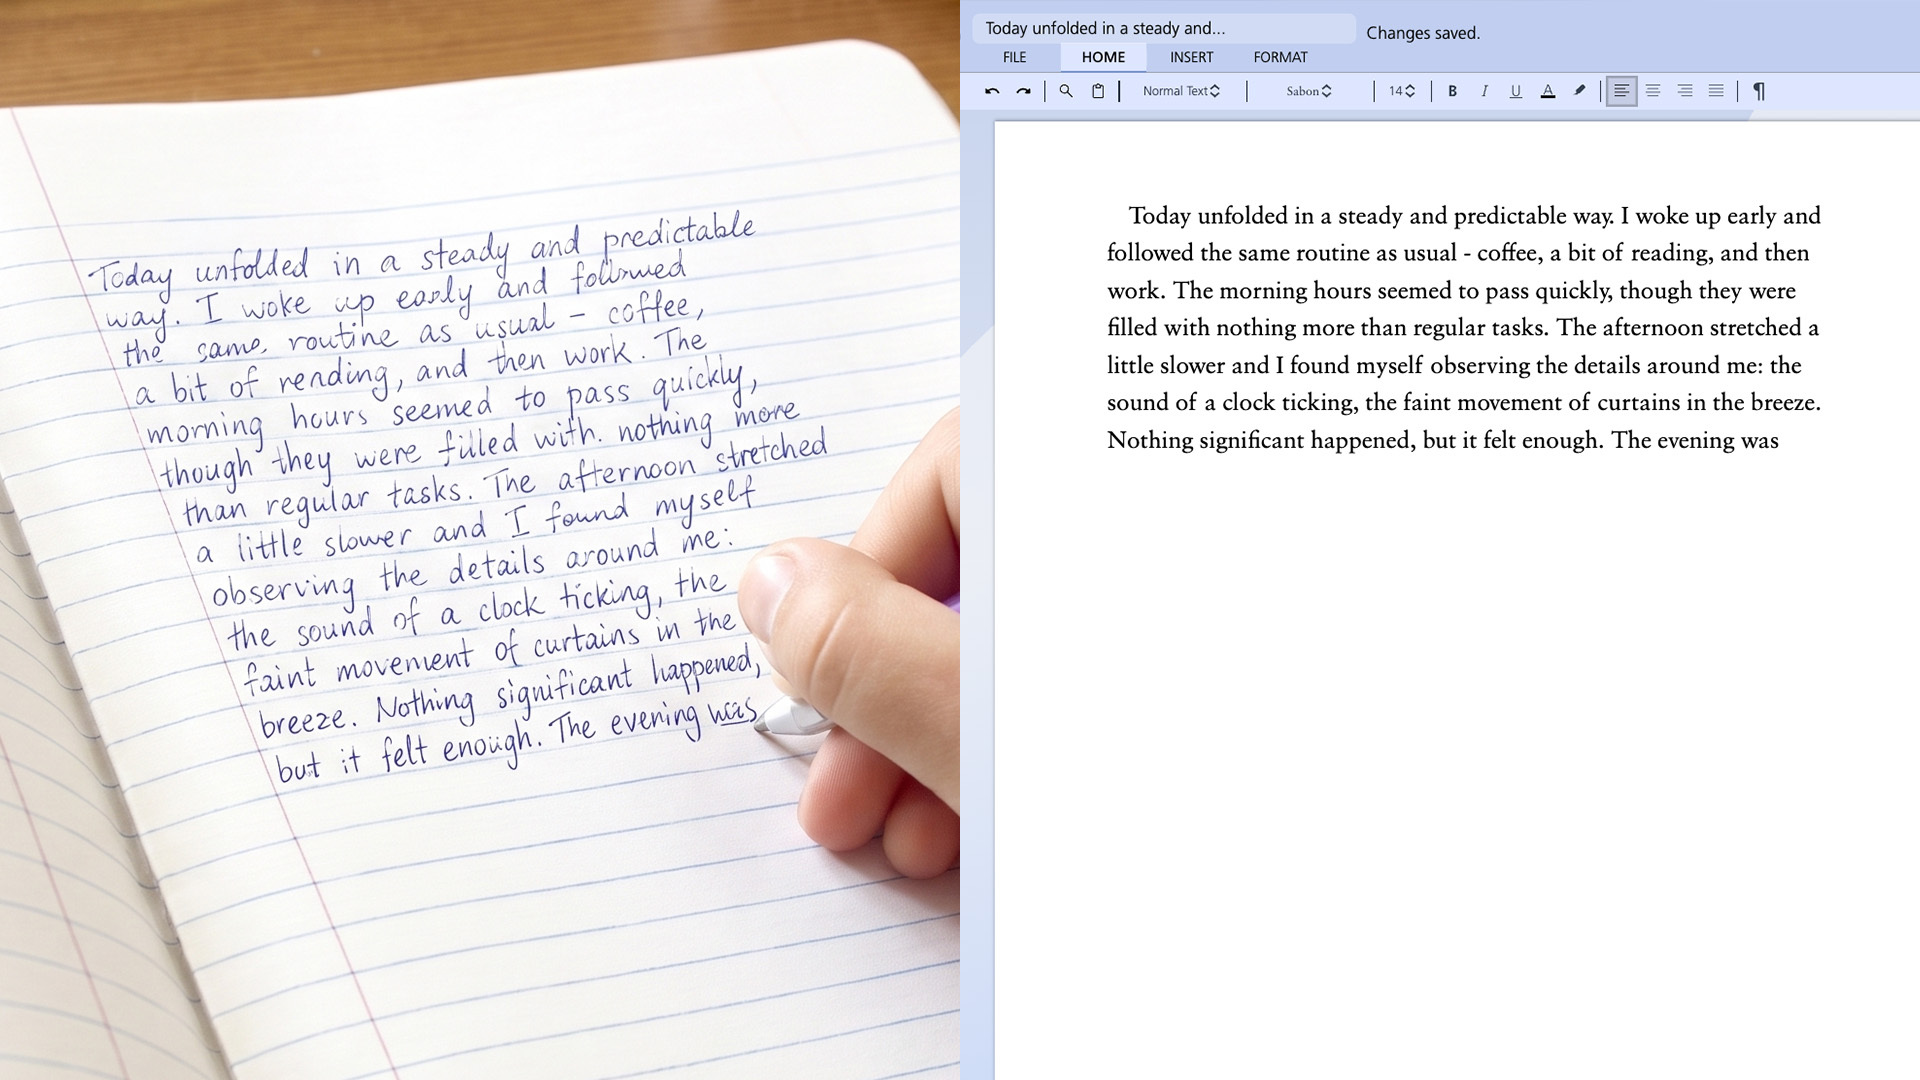 Today unfolded in a steady and predictable
way. I woke up early and followed
the same routine as usual – coffee,
a bit of reading, and then work. The
morning hours seemed to pass quickly,
though they were filled with nothing more
than regular tasks. The afternoon stretched
a little slower and I found myself
observing the details around me:
the sound of a clock ticking, the
faint movement of curtains in the
breeze. Nothing significant happened,
but it felt enough. The evening was
Today unfolded in a steady and...
Changes saved.
FILE HOME INSERT FORMAT
Normal Text Sabon 14 B I U A ¶
Today unfolded in a steady and predictable way. I woke up early and
followed the same routine as usual - coffee, a bit of reading, and then
work. The morning hours seemed to pass quickly, though they were
filled with nothing more than regular tasks. The afternoon stretched a
little slower and I found myself observing the details around me: the
sound of a clock ticking, the faint movement of curtains in the breeze.
Nothing significant happened, but it felt enough. The evening was